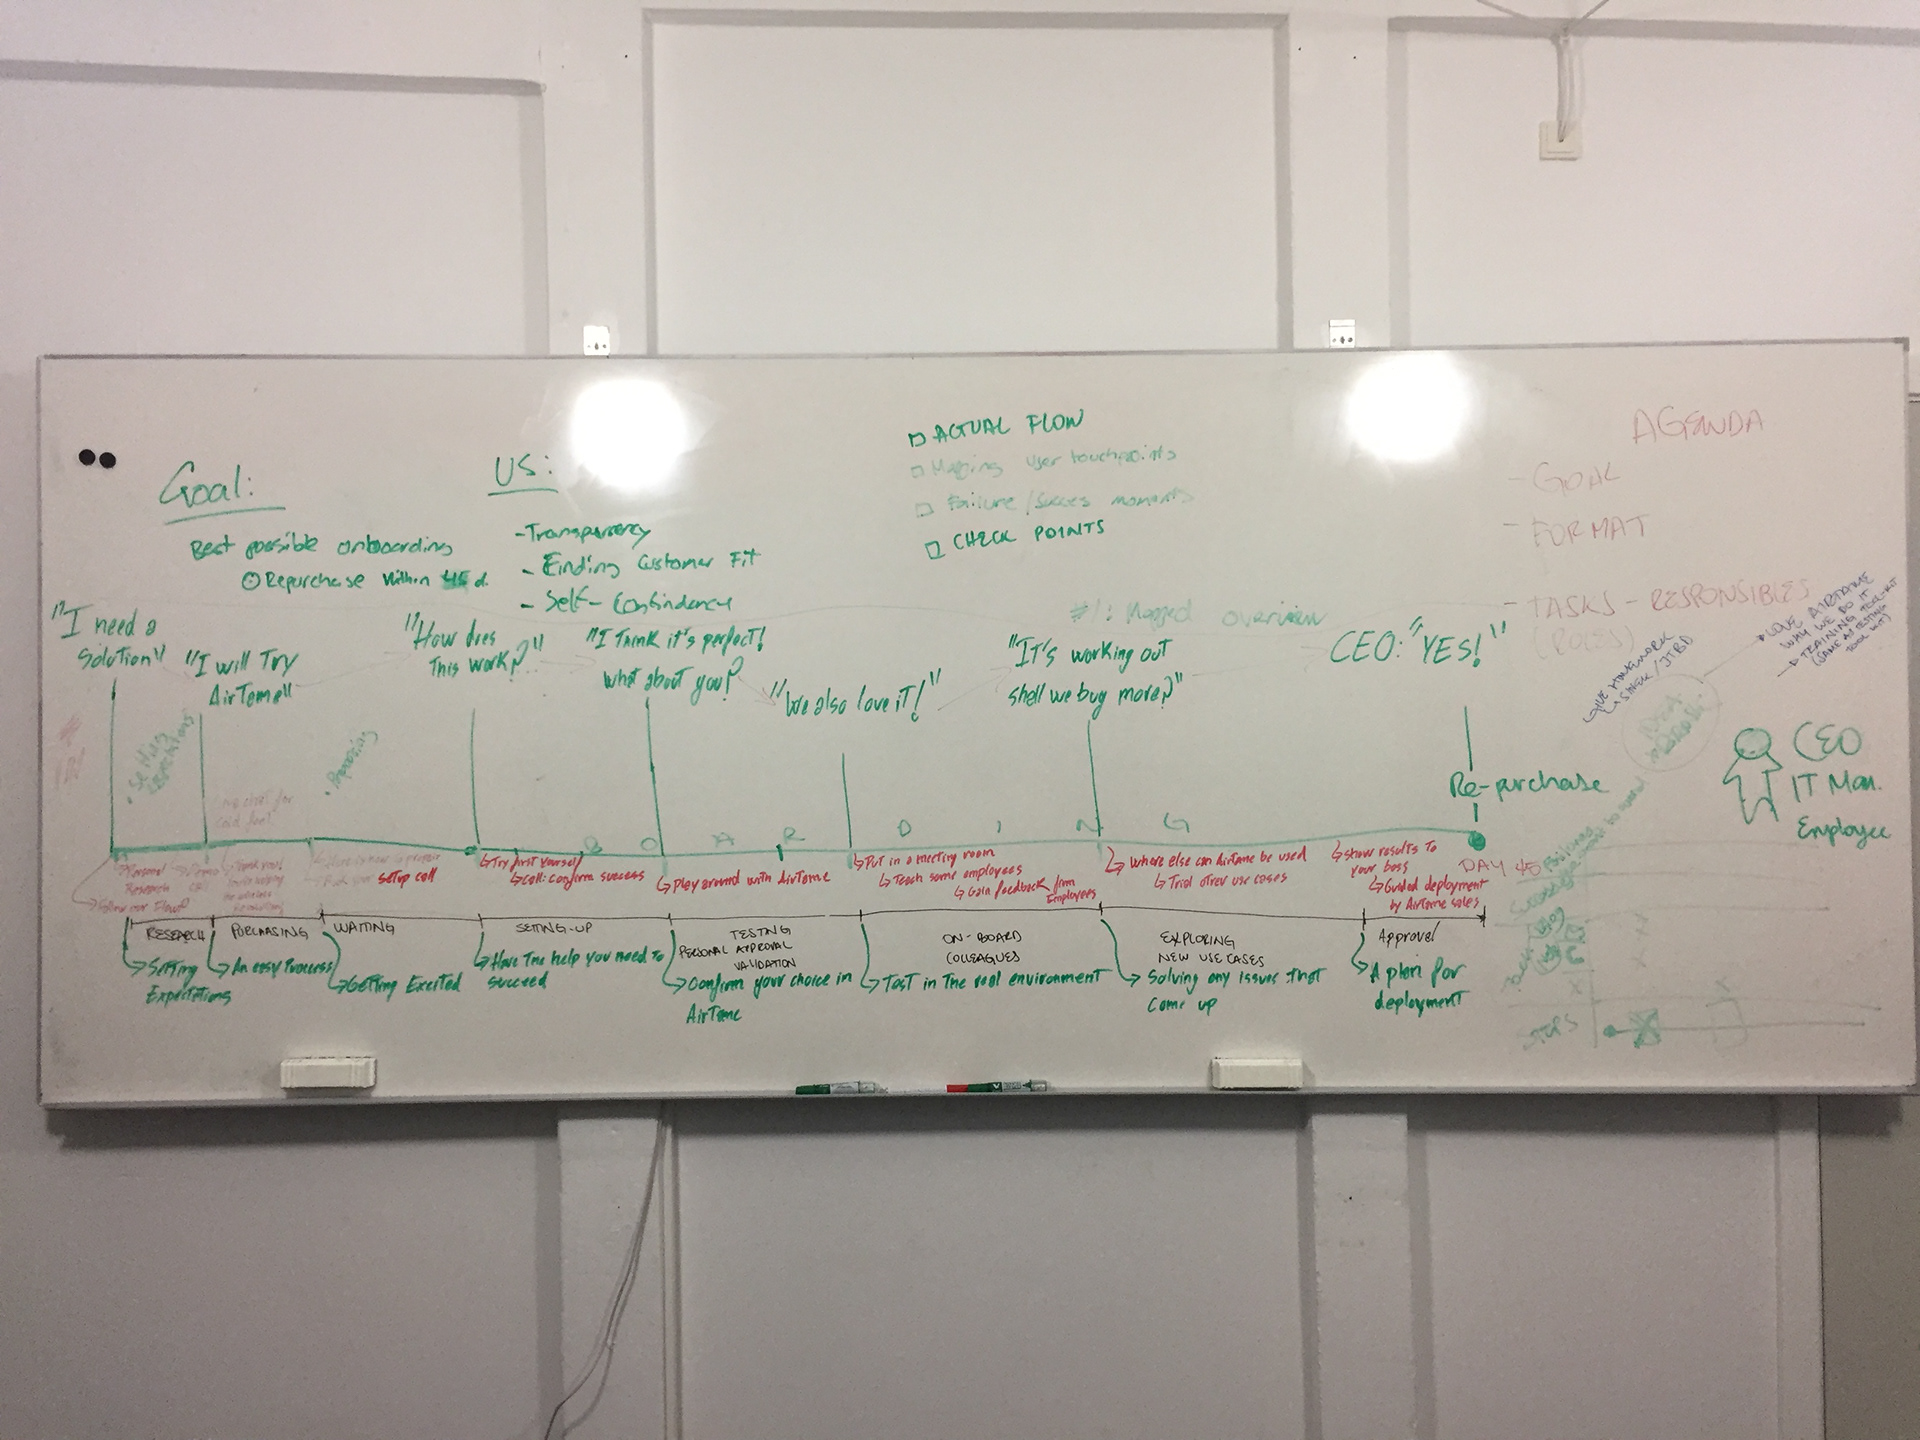 Goal:
Best possible onboarding
Repurchase within 45 d.
US:
- Transparency
- Finding Customer Fit
- Self-Contindency
ACTUAL FLOW
Mapping user touchpoints
Failure/Succes moments
CHECK POINTS
#1: Mapped overview
AGENDA
- GOAL
- FORMAT
- TASKS - RESPONSIBLES
(ROLES)
"I need a
Solution"
"I will Try
AirTame"
"How does
This work?"
"I Think it's perfect!
what about you?"
"We also love it!"
"IT's working out
shell we bug more?"
CEO: "YES!"
LOVE AIRTAME
WHY WE DO IT
TRAINING TOOL-KIT
(SAME AS TESTING
TOOL KIT)
CEO
IT Man.
Employee
Setting
Preparing
Live chat for
Re-purchase
B O A R D I N G
Personal
Research
Demo
Try first yourself
Call: confirm success
setup call
Play around with AirTame
Put in a meeting room
Teach some employees
Gain feedback from
Employees
Where else can AirTame be used
Trial other use cases
show results to
your boss
Guided deployment
by AirTame sales
DAY 45
RESEARCH
PURCHASING
WAITING
SETTING-UP
TESTING
PERSONAL APPROVAL
VALIDATION
ON-BOARD
COLLEAGUES
EXPLORING
NEW USE CASES
Approval
Setting
Expectations
An easy Process
Getting Excited
Have The help you need to
succeed
Confirm your choice in
AirTame
Test in The real environment
Solving any issues that
come up
A plan for
deployment
STEPS